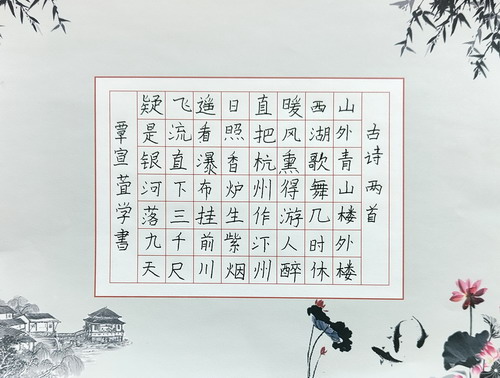 古诗两首
山外青山楼外楼
西湖歌舞几时休
暖风熏得游人醉
直把杭州作汴州
日照香炉生紫烟
遥看瀑布挂前川
飞流直下三千尺
疑是银河落九天
覃宣萱学書